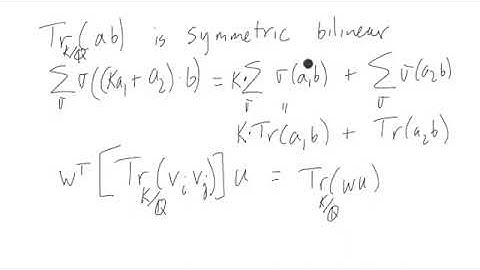 Tr_{K/ℚ}(ab) is symmetric bilinear
∑_σ σ((ka₁ + a₂)·b) = k·∑_σ σ(a₁b) + ∑_σ σ(a₂b)
=
k·Tr(a₁b) + Tr(a₂b)
wᵀ [Tr_{K/ℚ}(vᵢvⱼ)] u = Tr_{K/ℚ}(wu)